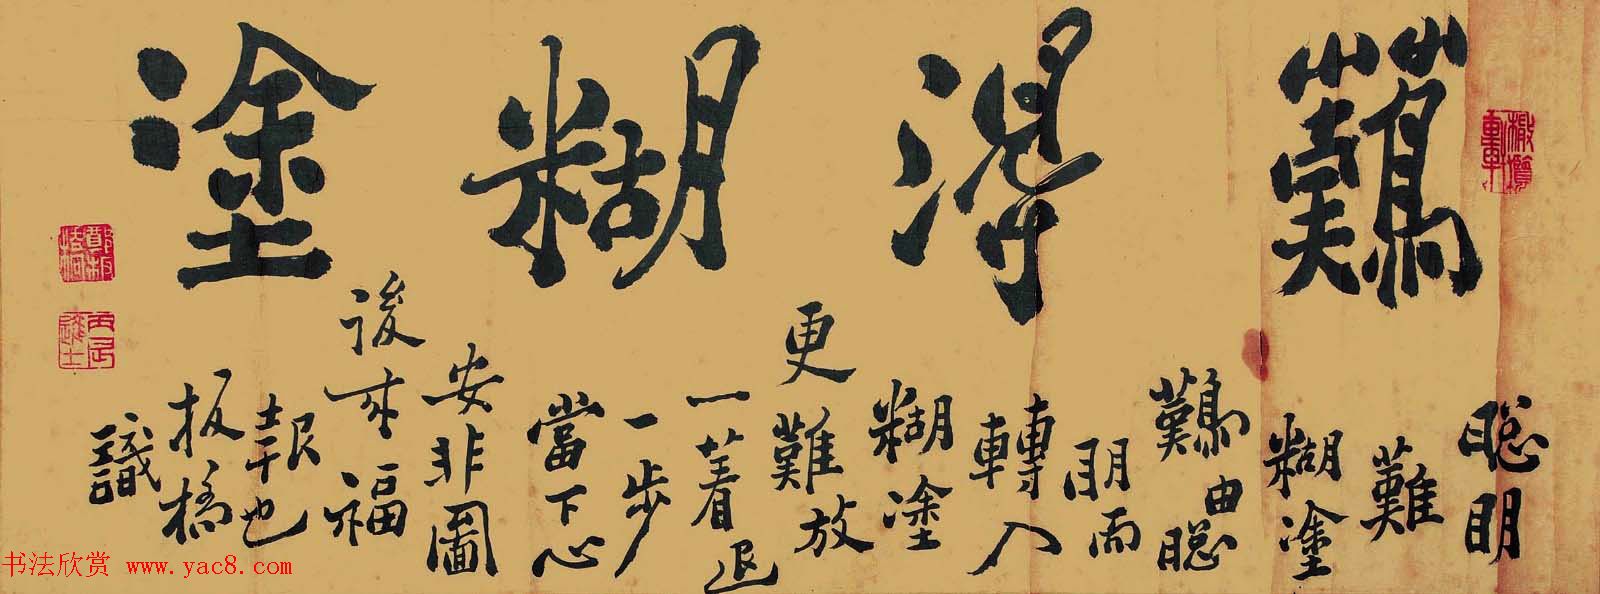 難得糊塗
聰明
難
糊塗
難由聰
明而
轉入
糊塗
更難放
一着退
一步
當下心
安非圖
後來福
報也
板橋
識
橄欖軒
丙辰進士
书法欣赏 www.yac8.com